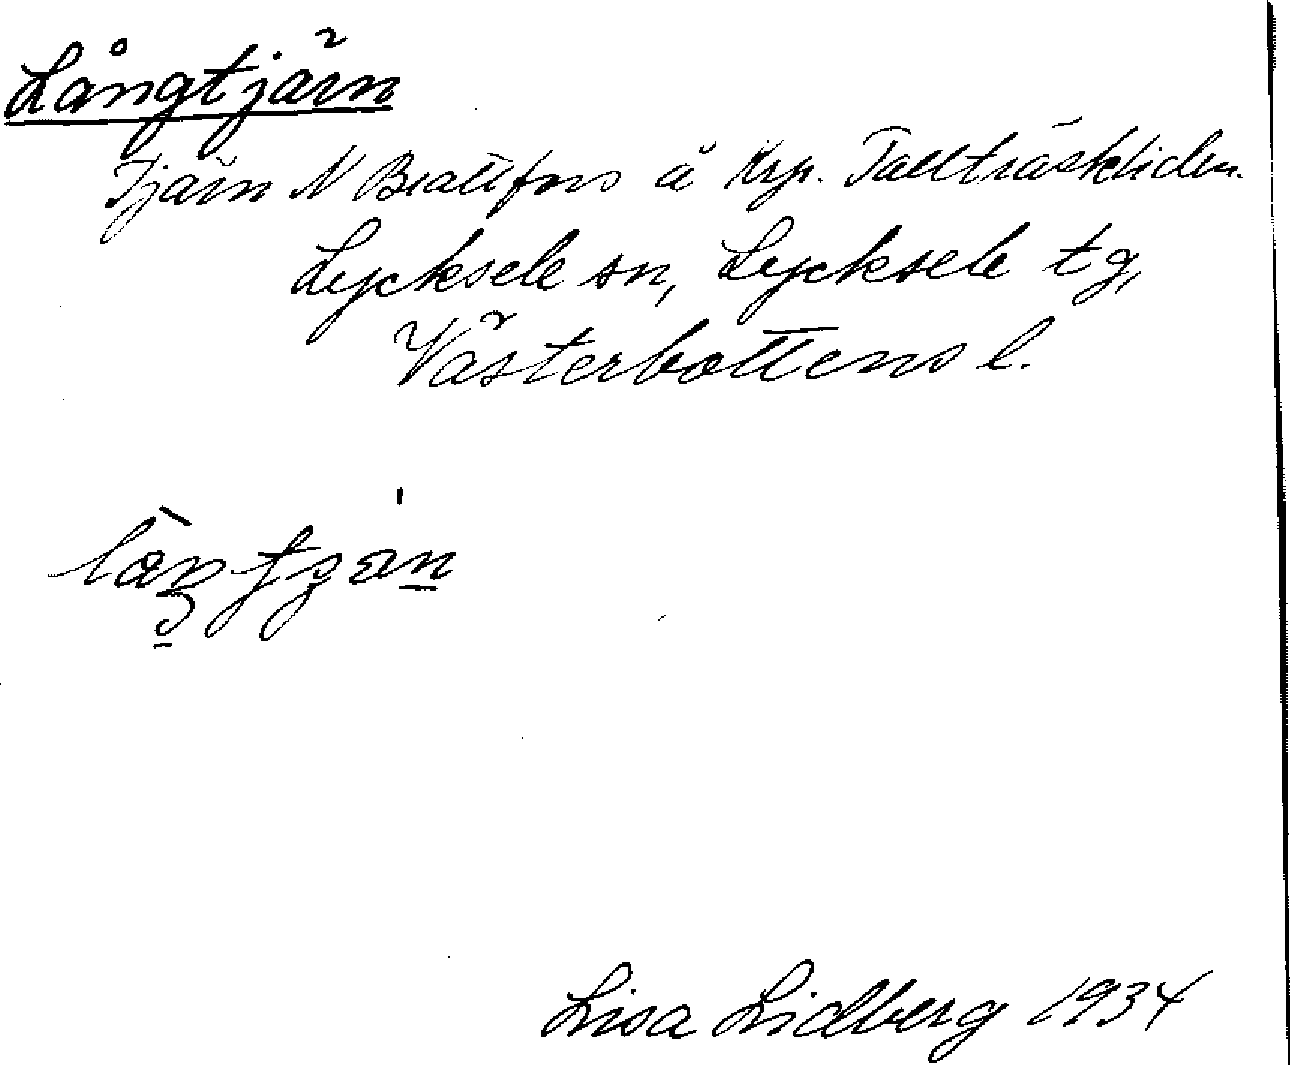 Långtjärn
Tjärn N Brattfors å krp. Tallträskliden.
Lycksele sn, Lycksele tg,
Västerbottens l.
Lisa Lidberg 1934